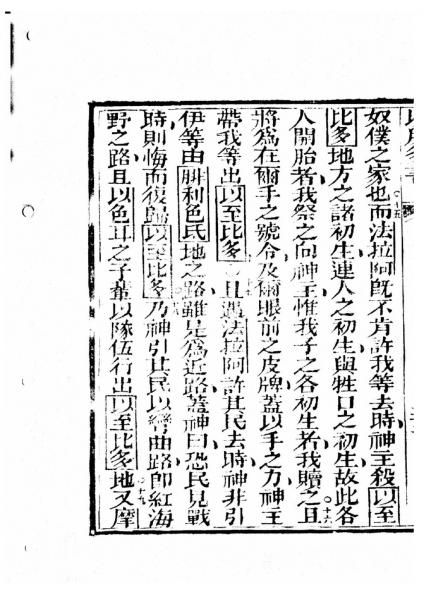 奴僕之家也而法拉阿既不肯許我等去時神主殺以至
○十五
比多地方之諸初生連人之初生與牲口之初生故此各
人開胎者我祭之向神主惟我子之各初生者我贖之且
○十六
將為在爾手之號令及爾眼前之皮牌蓋以手之力神主
帶我等出以至比多○且遇法拉阿許其民去時神非引
伊等由腓利色氏地之路雖是為近路蓋神曰恐民見戰
時則悔而復歸以至比多乃神引其民以彎曲路即紅海
野之路且以色耳之子輩以隊伍行出以至比多地又摩
○十九